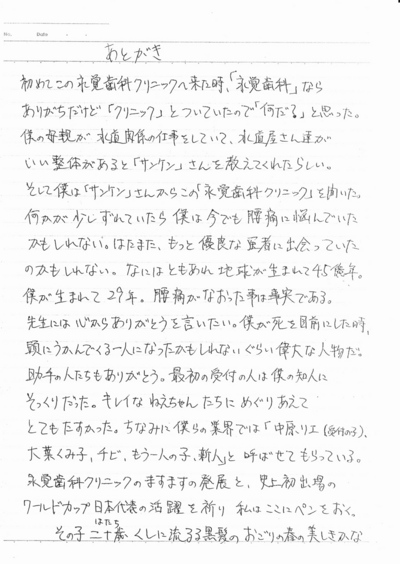 No.
Date ・ ・
あとがき
初めてこの永覚歯科クリニックへ来た時、「永覚歯科」なら
ありがちだけど「クリニック」とついていたので「何だ?」と思った。
僕の母親が水道関係の仕事をしていて、水道屋さん達が
いい整体があると「サンケン」さんを教えてくれたらしい。
そして僕は「サンケン」さんからこの「永覚歯科クリニック」を聞いた。
何かが少しずれていたら僕は今でも腰痛に悩んでいた
かもしれない。はたまた、もっと優良な医者に出会っていた
のかもしれない。なにはともあれ地球が生まれて45億年。
僕が生まれて29年。腰痛がなおった事は事実である。
先生には心からありがとうを言いたい。僕が死を目前にした時、
頭にうかんでくる一人になったかもしれないぐらい偉大な人物だ。
助手の人たちもありがとう。最初の受付の人は僕の知人に
そっくりだった。キレイなねえちゃんたちにめぐりあえて
とてもたすかった。ちなみに僕らの業界では「中原リエ(受付の子)、
大葉くみ子、チビ、もう一人の子、新人」と呼ばせてもらっている。
永覚歯科クリニックのますますの発展と、史上初出場の
ワールドカップ日本代表の活躍を祈り 私はここにペンをおく。
はたち
その子二十歳 くしに流るる黒髪のおごりの春の美しきかな